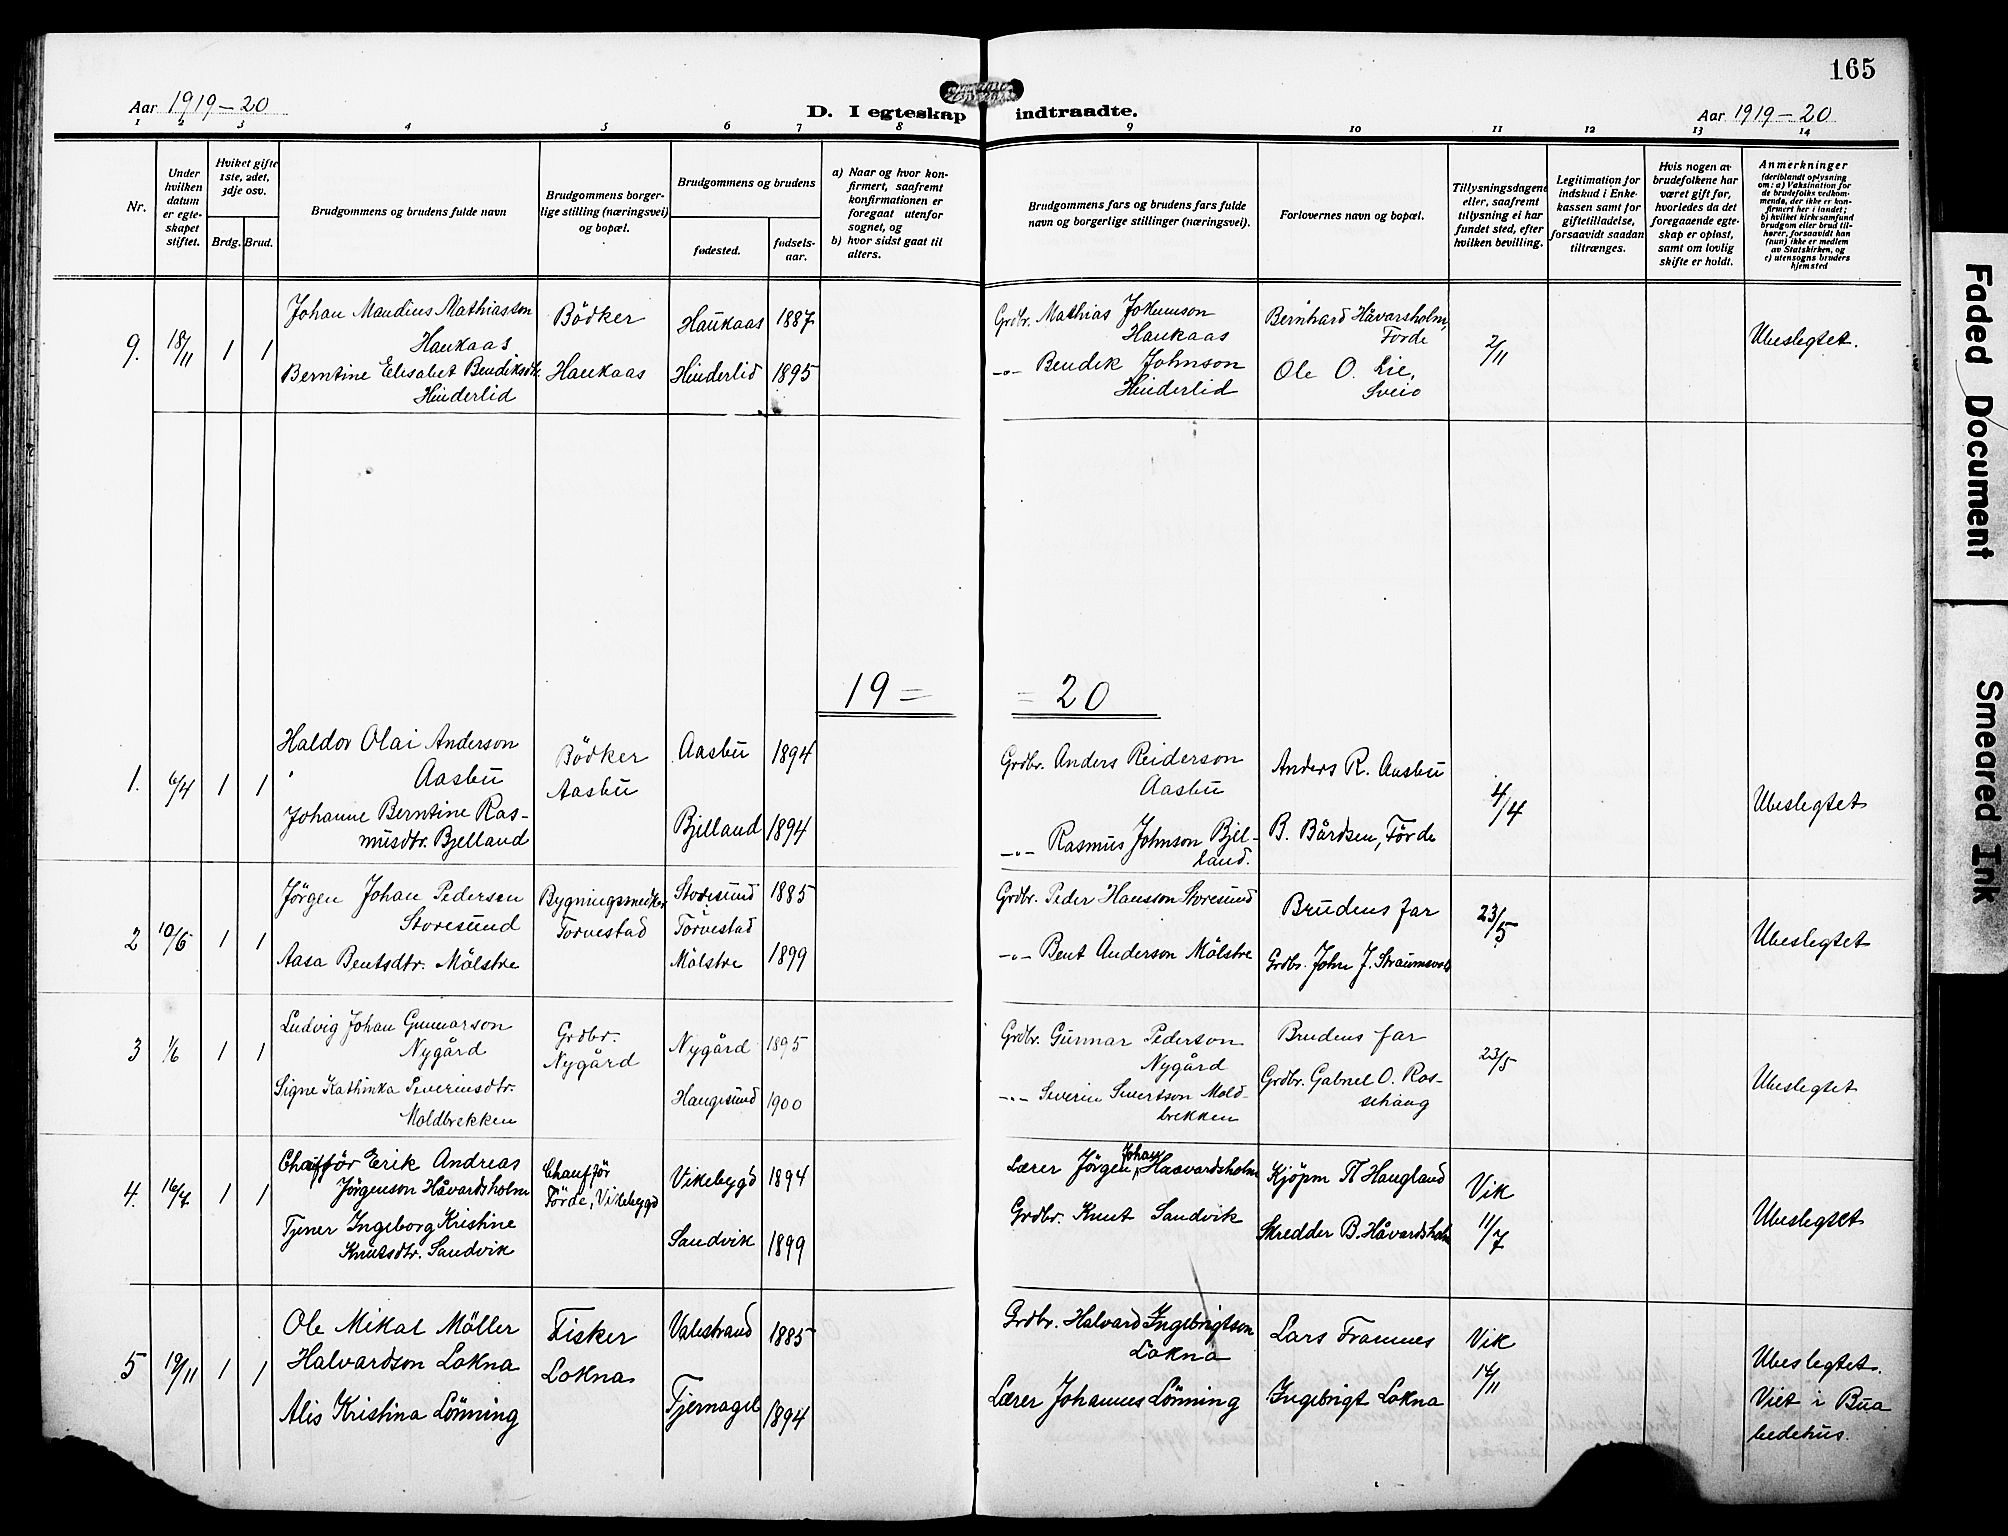 165
Aar 1919-20
D. I egteskap indtraadte.
Aar 1919-20
1 2 3 4 5 6 7 8 9 10 11 12 13 14
Nr.
Under hvilken datum er egteskapet stiftet.
Hvilket gifte 1ste, 2det, 3dje osv.
Brdg. Brud.
Brudgommens og brudens fulde navn
Brudgommens borgerlige stilling (næringsvei) og bopæl.
Brudgommens og brudens
fødested.
fødselsaar.
a) Naar og hvor konfirmert, saafremt konfirmationen er foregaat utenfor sognet, og
b) hvor sidst gaat til alters.
Brudgommens fars og brudens fars fulde navn og borgerlige stillinger (næringsvei).
Forlovernes navn og bopæl.
Tillysningsdagene eller, saafremt tillysning ei har fundet sted, efter hvilken bevilling.
Legitimation for indskud i Enkekassen samt for giftetilladelse, forsaavidt saadan tiltrænges.
Hvis nogen av brudefolkene har været gift før, hvorledes da det foregaaende egteskap er opløst, samt om lovlig skifte er holdt.
Anmerkninger (deriblandt oplysning om: a) Vaksination for de brudefolks vedkommende, der ikke er konfirmert her i landet; b) hvilket kirkesamfund brudgom eller brud tilhører, forsaavidt han (hun) ikke er medlem av Statskirken, og c) utensogns bruders hjemsted
9. 18/11 1 1
Johan Mandius Mathiasson
Haukaas
Berntine Elisabet Bendiksdtr.
Hinderlid
Bödker
Haukaas
Haukaas 1887
Hinderlid 1895
Grdbr. Mathias Johnnson
Haukaas
-"- Bendik Johnson
Hinderlid
Bernhard Håvarsholm,
Förde
Ole O. Lie,
Sveio
2/11
Ubeslegtet.
19= =20
1. 6/4 1 1
Haldor Olai Anderson
Aasbu
Johanne Berntine Ras-
musdtr. Bjelland
Bödker
Aasbu
Aasbu 1894
Bjelland 1894
Grdbr. Anders Reiderson
Aasbu
-"- Rasmus Johnson Bjel-
land.
Anders R. Aasbu
B. Bårdsen, Förde
4/4
Ubeslegtet
2 10/6 1 1
Jörgen Johan Pedersen
Storesund
Aasa Bentsdtr. Mölstre
Bygningssnedker
Torvestad
Storesund 1885
Torvestad
Mölstre 1899
Grdbr. Peder Hansson Storesund
-"- Bent Anderson Mölstre
Brudens far
Grdbr. John J. Straumsvold
23/5
Ubeslegtet
3 1/6 1 1
Ludvig Johan Gunnarson
Nygård
Signe Kathinka Severinsdtr.
Moldbrekken
Grdbr.
Nygård
Nygård 1895
Haugesund 1900
Grdbr. Gunnar Pederson
Nygård
-"- Severin Sivertson Mold-
brekken
Brudens far
Grdbr. Gabriel O. Ros-
sehaug
23/5
Ubeslegtet
4. 16/7 1 1
Chaufför Erik Andreas
Jörgenson Håvardsholm
Tjener Ingeborg Kristine
Knutsdtr. Sandvik
Chaufför
Förde, Vikebygd
Vikebygd 1894
Sandvik 1899
Johan
Lærer Jörgen Haavardsholm
Grdbr. Knut Sandvik
Kjöpm Haugland
Skredder B. Håvardsholm
Vik
11/7
Ubeslegtet
5 19/11 1 1
Ole Mikal Möller
Halvardson Lokna
Alis Kristina Lönning
Fisker
Lokna
Valestrand 1885
Tjernagel 1894
Grdbr. Halvard Ingebrigtson
Lokna
Lærer Johannes Lönning
Lars Framnes
Ingebrigt Lokna
Vik
14/11
Ubeslegtet.
Viet i Bua
bedehus.
Faded Document
Smeared Ink